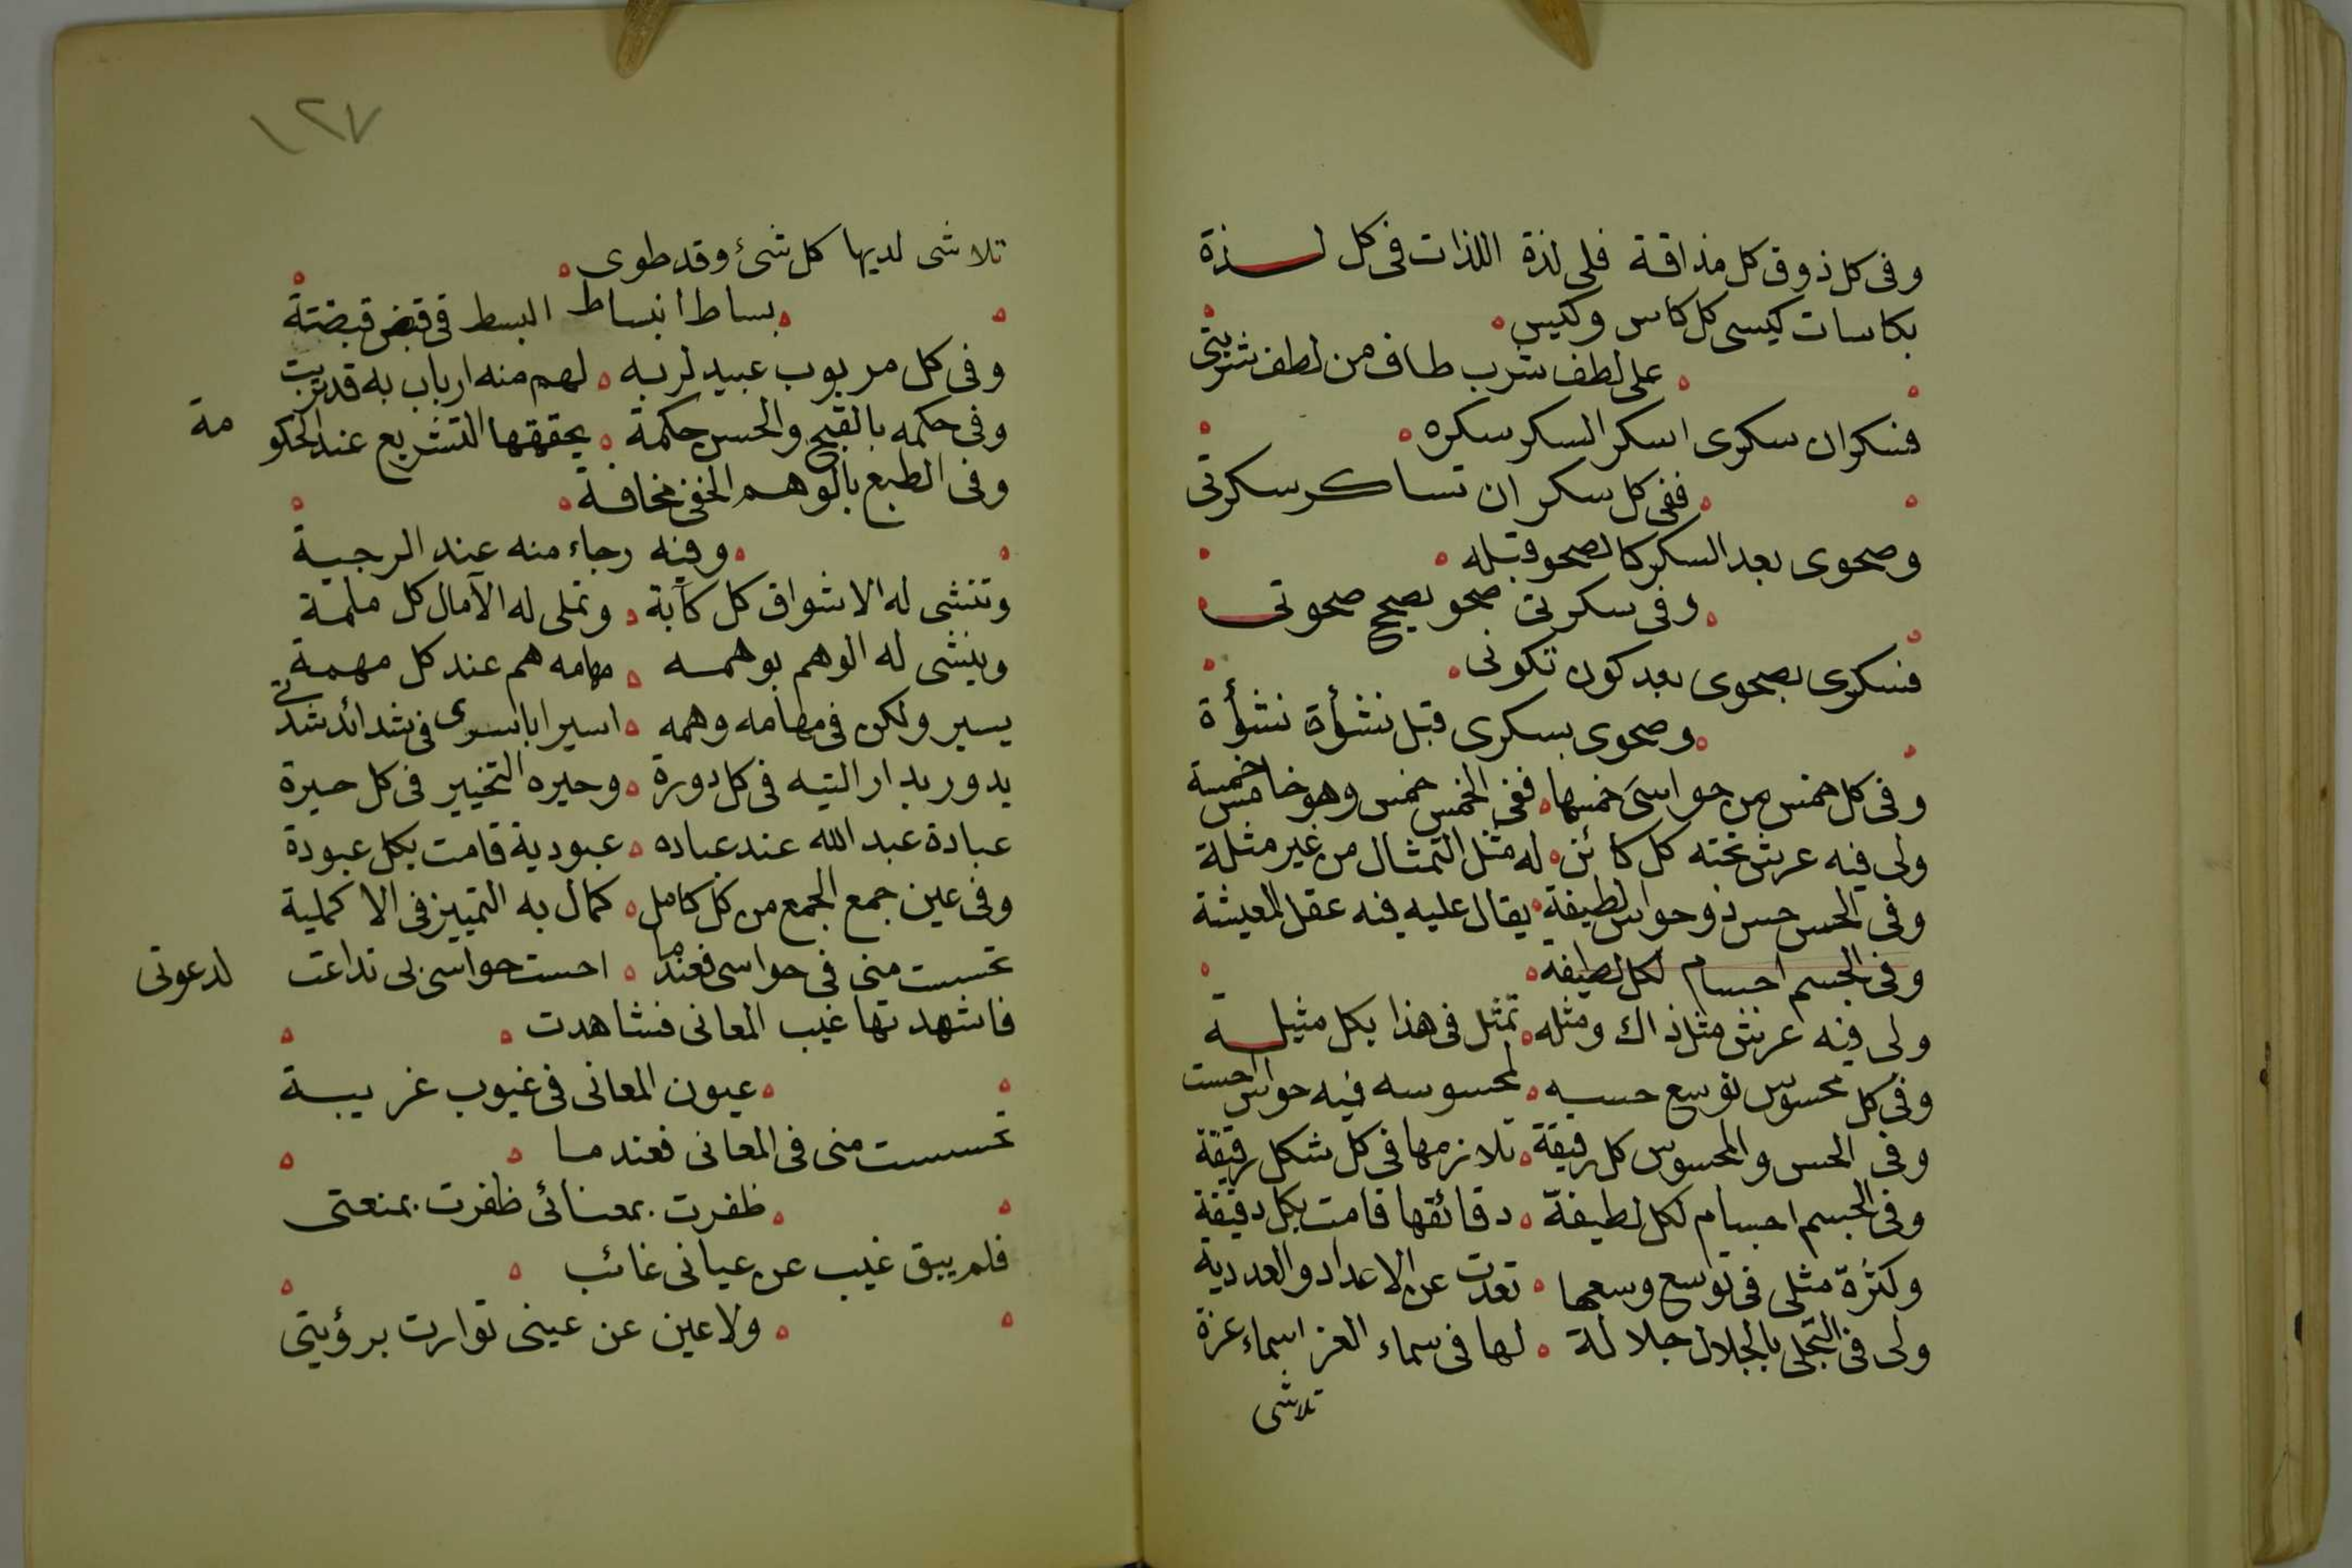 وفى كل ذوق كل مذاقة فلى لذة اللذات فى كل لذة
بكاسات كيسى كل كاس وكيس
على لطف شرب طاف من لطف شربتى
فسكران سكرى اسكر السكر سكره
ففى كل سكر ان تساكر سكرتى
وصحوى بعد السكر كالصحو قبله
وفى سكرتى صحو بصحح صحوتى
فسكرى بصحوى بعد كون تكونى
وصحوى بسكرى قبل نشأة نشأة
وفى كل خمس من حواسى خمسها ففى الخمس خمس وهو خامس خمسة
ولى فيه عرش تحته كل كائن له مثل التمثال من غير مثلة
وفى الحس حس ذو حواس لطيفة يقال عليه فيه عقل المعيشة
وفى الجسم اجسام لكل لطيفة
ولى فيه عرش مثل ذاك ومثله تمثل فى هذا بكل مثيلة
وفى كل محسوس توسع حسيه لمحسوسه فيه حواس احست
وفى الحس والمحسوس كل رقيقة تلازمها فى كل شكل رقيقة
وفى الجسم اجسام لكل لطيفة دقائقها قامت بكل دقيقة
ولكثرة مثلى فى توسع وسعها تعدت عن الاعداد والعددية
ولى فى التجلى بالجلال جلالة لها فى سماء العز اسماء عزة
تلاشى
١٢٧
تلاشى لديها كل شئ وقد طوى
بساط انبساط البسط فى قبض قبضتة
وفى كل مربوب عبيد لربه لهم منه ارباب به قد تربت
وفى حكمه بالقبح والحسن حكمة يحققها التشريع عند الحكومة
وفى الطبع بالوهم الخفى مخافة
وفيه رجاء منه عند الرجية
وتنشى له الاشواق كل كآبة وتملى له الآمال كل ملمة
وينشى له الوهم بوهمه مهامه هم عند كل مهمة
يسير ولكن فى مهامه وهمه اسيرا باسرى فى شدائد شدتى
يدور بدار التيه فى كل دورة وحيره التخيير فى كل حيرة
عبادة عبد الله عند عباده عبودية قامت بكل عبودة
وفى عين جمع الجمع من كل كامل كمال به التمييز فى الاكملية
تحسست منى فى حواسى فعندما احست حواسى بى تداعت لدعوتى
فاشهدتها غيب المعانى فشاهدت
عيون المعانى فى غيوب غريبة
تحسست منى فى المعانى فعندما
ظفرت بمعنائى ظفرت بمنعتى
فلم يبق غيب عن عيانى غائب
ولا عين عن عينى توارت برؤيتى